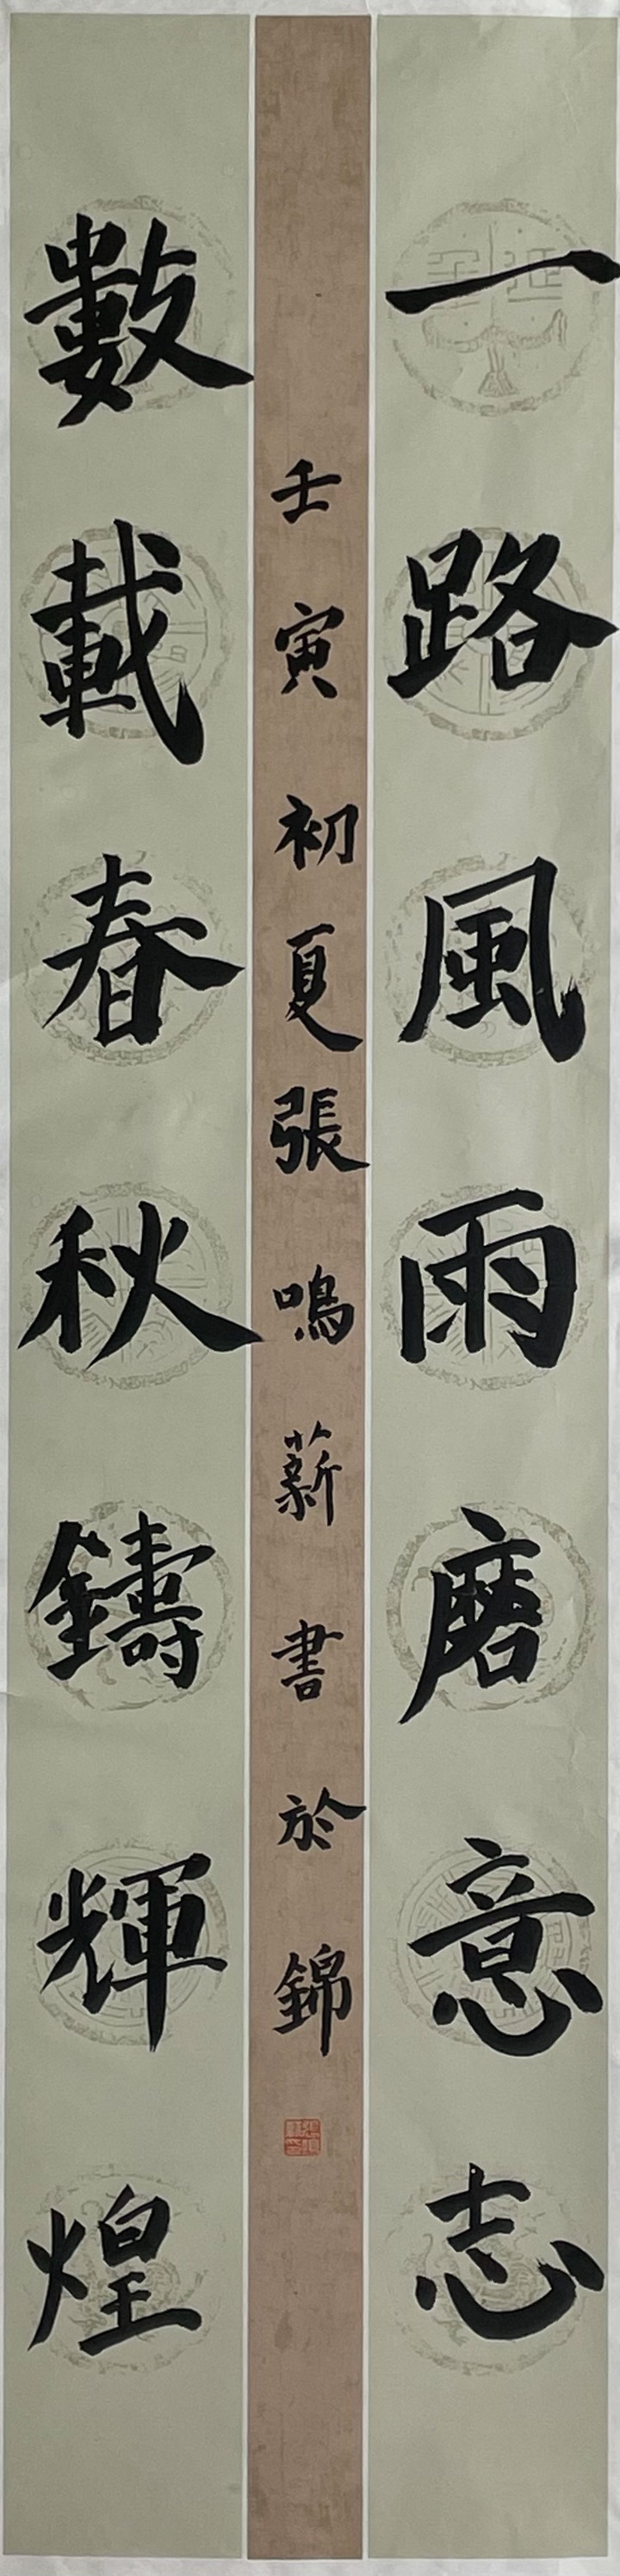 一路風雨磨意志
數載春秋鑄輝煌
壬寅初夏張鳴薪書於錦